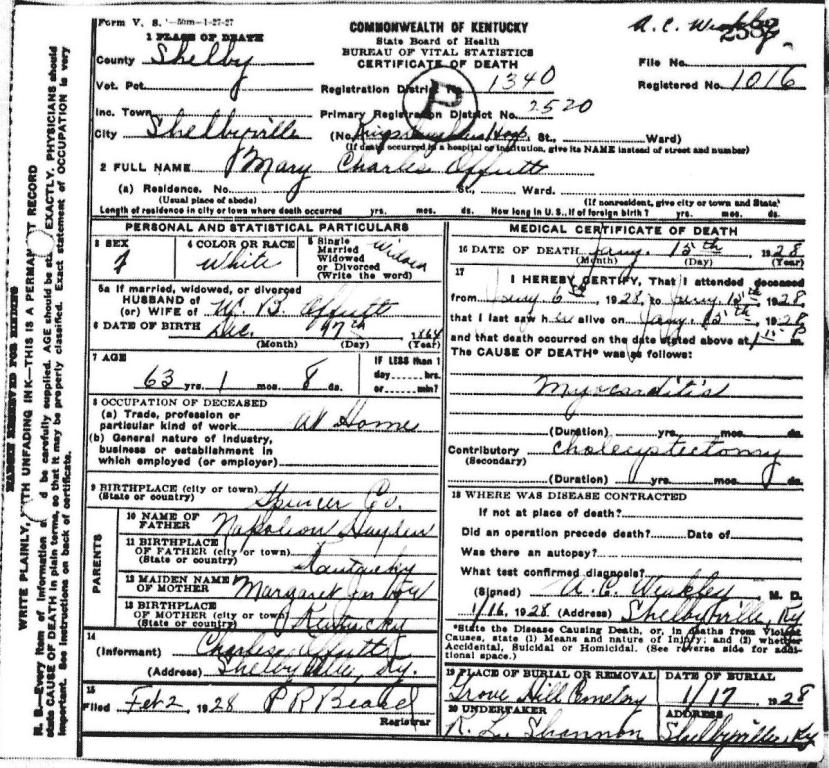 Form V. S. 1-50m-1-27-27
COMMONWEALTH OF KENTUCKY
State Board of Health
BUREAU OF VITAL STATISTICS
CERTIFICATE OF DEATH
1 PLACE OF DEATH
County Shelby
File No.
Vot. Pct.
Registration District No. 1340
Registered No. 1016
Inc. Town
Primary Registration District No. 2520
City Shelbyville (No. Kings Daughters Hosp St., Ward)
(If death occurred in a hospital or institution, give its NAME instead of street and number)
2 FULL NAME Mary Charles Offutt
(a) Residence. No. St., Ward.
(Usual place of abode) (If nonresident, give city or town and State)
Length of residence in city or town where death occurred yrs. mos. ds. How long in U.S., if of foreign birth? yrs. mos. ds.
PERSONAL AND STATISTICAL PARTICULARS
3 SEX f
4 COLOR OR RACE White
5 Single Married Widowed or Divorced (Write the word) Widow
5a If married, widowed, or divorced
HUSBAND of
(or) WIFE of W. B. Offutt
6 DATE OF BIRTH Dec. 7th 1864
(Month) (Day) (Year)
7 AGE
63 yrs. 1 mos. 8 ds.
IF LESS than 1
day hrs.
or min?
8 OCCUPATION OF DECEASED
(a) Trade, profession or
particular kind of work At Home
(b) General nature of industry,
business or establishment in
which employed (or employer)
9 BIRTHPLACE (city or town)
(State or country) Spencer Co.
PARENTS
10 NAME OF
FATHER Napoleon Hayden
11 BIRTHPLACE
OF FATHER (city or town)
(State or country) Kentucky
12 MAIDEN NAME
OF MOTHER Margaret
13 BIRTHPLACE
OF MOTHER (city or town)
(State or country) Kentucky
14
(Informant) Charles Offutt
(Address) Shelbyville, Ky.
15
Filed Feb 2, 1928 P R Beard
Registrar
MEDICAL CERTIFICATE OF DEATH
16 DATE OF DEATH Jany. 15th 1928
(Month) (Day) (Year)
17
I HEREBY CERTIFY, That I attended deceased
from Jany 6th, 1928, to Jany. 15th 1928,
that I last saw her alive on Jany. 15th, 1928
and that death occurred on the date stated above at P
The CAUSE OF DEATH* was as follows:
Myocarditis
(Duration) yrs. mos. ds.
Contributory Cholecystectomy
(Secondary)
(Duration) yrs. mos. ds.
18 WHERE WAS DISEASE CONTRACTED
If not at place of death?
Did an operation precede death? Date of
Was there an autopsy?
What test confirmed diagnosis?
(Signed) A. C. Weakley, M. D.
1/16, 1928 (Address) Shelbyville, Ky
*State the Disease Causing Death, or, in deaths from Violent
Causes, state (1) Means and nature of Injury; and (2) whether
Accidental, Suicidal or Homicidal. (See reverse side for addi-
tional space.)
19 PLACE OF BURIAL OR REMOVAL
Grove Hill Cemetery
DATE OF BURIAL
1/17 1928
20 UNDERTAKER
R. Lee Shannon
ADDRESS
Shelbyville Ky
MARGIN RESERVED FOR BINDING
WRITE PLAINLY, WITH UNFADING INK—THIS IS A PERMANENT RECORD
N. B.—Every item of information should be carefully supplied. AGE should be stated EXACTLY. PHYSICIANS should
state CAUSE OF DEATH in plain terms, so that it may be properly classified. Exact statement of OCCUPATION is very
important. See instructions on back of certificate.